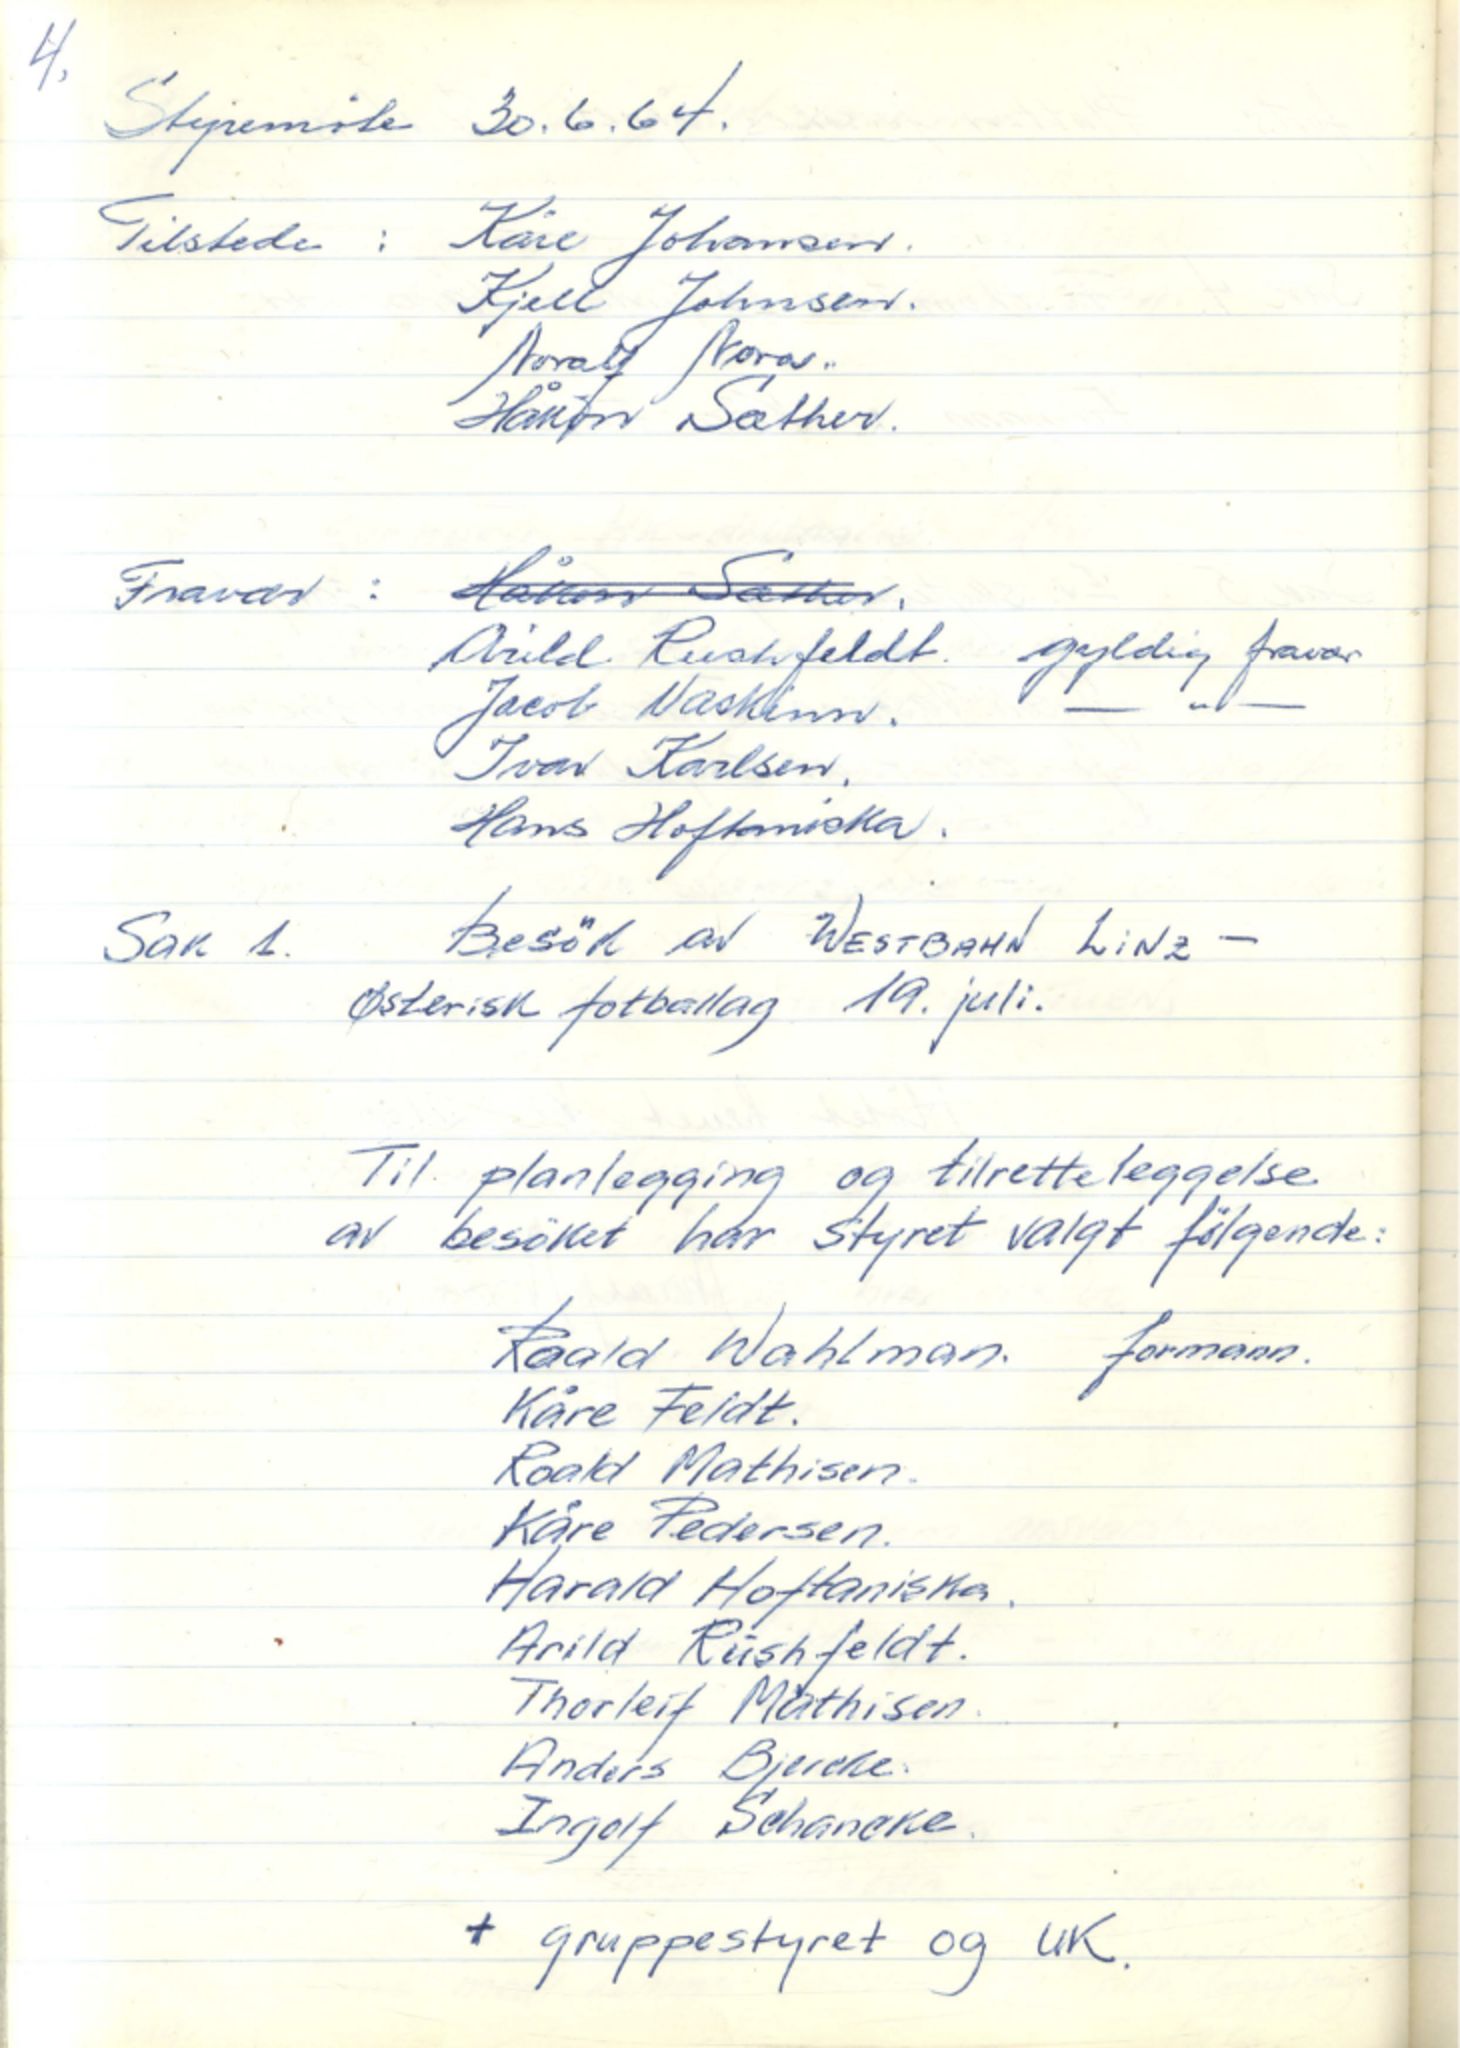 4.
Styremöte 30.6.64.
Tilstede : Kåre Johansen.
Kjell Johnsen.
Noralf Nora.
Håkon Sæther.
Fravær : Håkon Sæther.
Arild Rushfeldt. gyldig fravær
Jacob Naskinn. — " —
Ivar Karlsen.
Hans Hoftaniska.
Sak 1. Besök av WESTBAHN LINZ —
Østerisk fotballag 19. juli.
Til planlegging og tilretteleggelse
av besöket har styret valgt følgende:
Roald Wahlman. formann.
Kåre Feldt.
Roald Mathisen.
Kåre Pedersen.
Harald Hoftaniska.
Arild Rushfeldt.
Thorleif Mathisen.
Anders Bjercke.
Ingolf Schancke.
+ gruppestyret og UK.